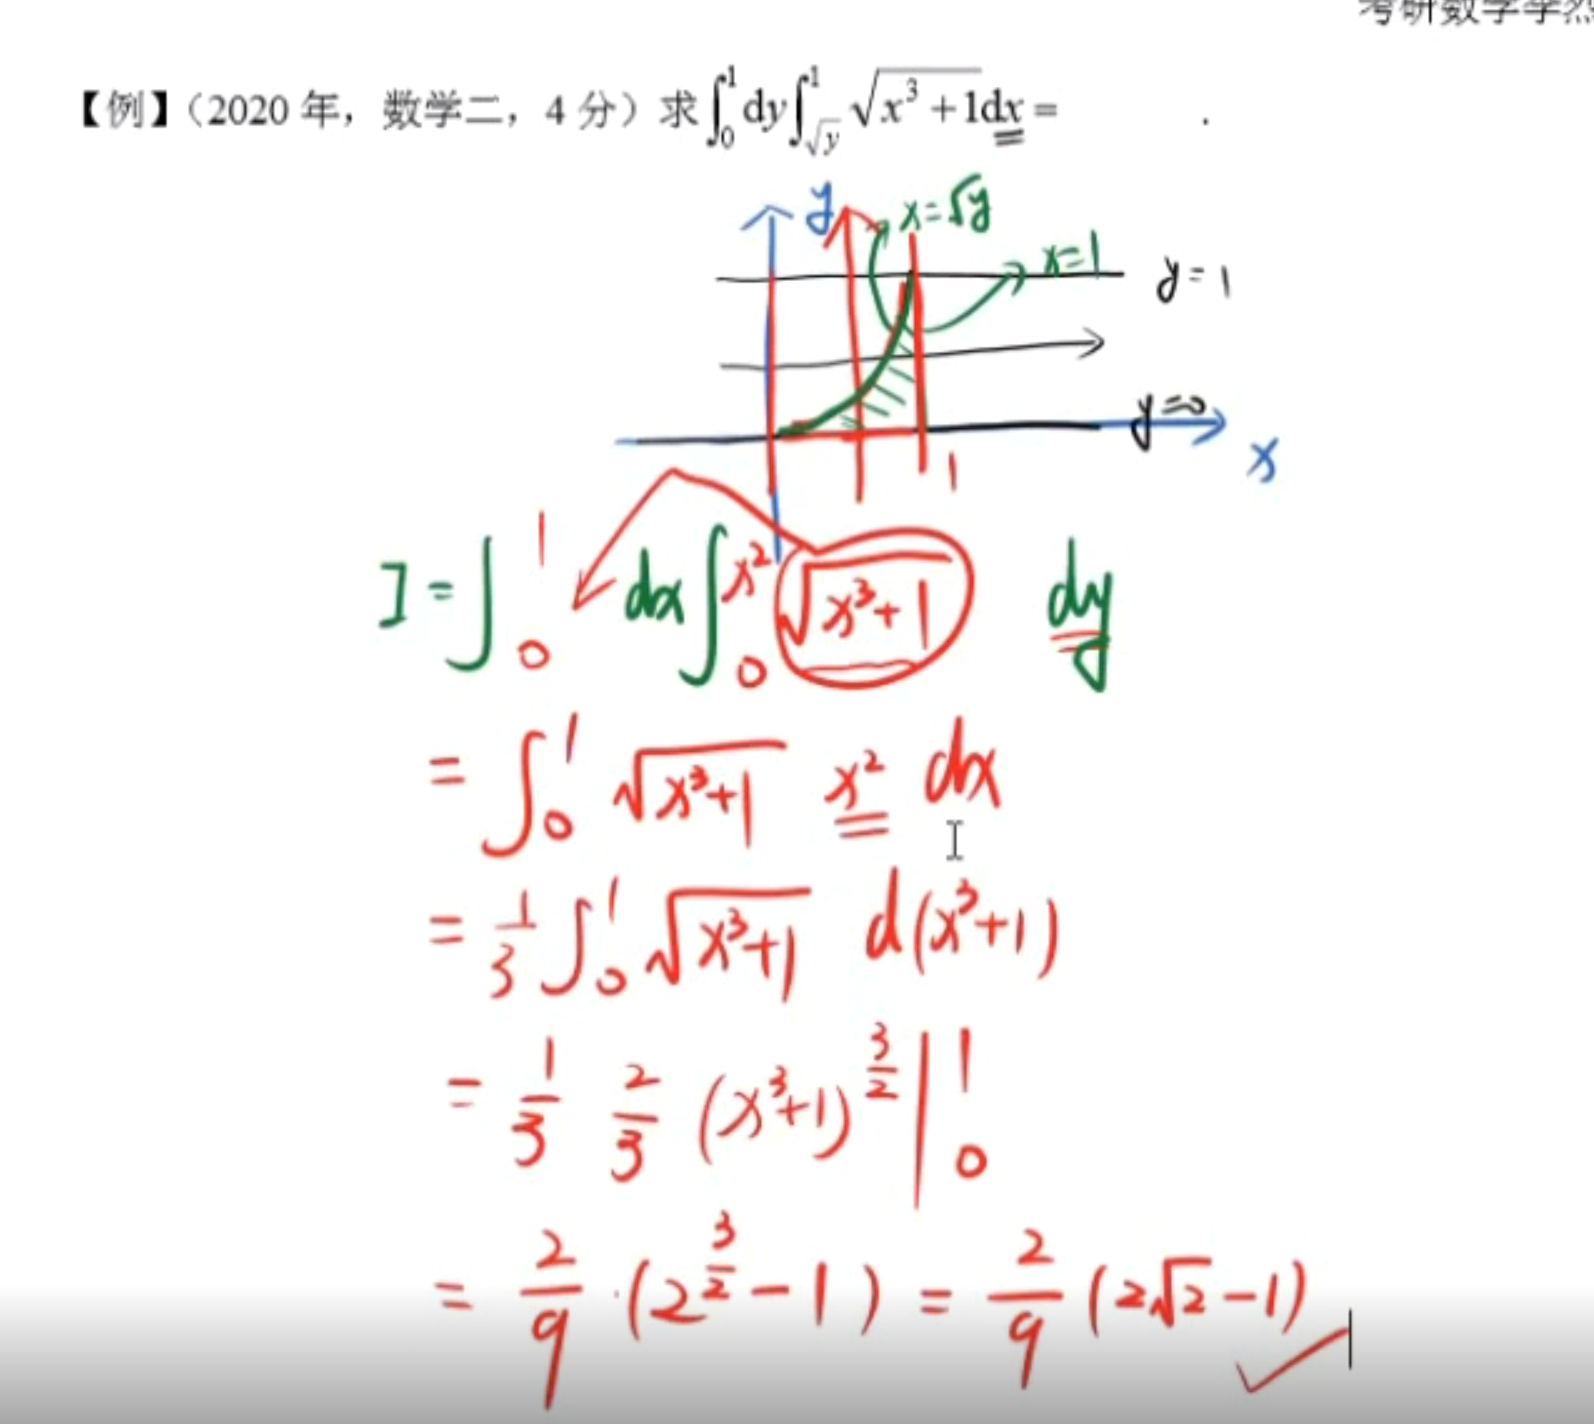 考研数学学然
【例】（2020 年，数学二，4 分）求∫₀¹dy∫_{√y}^1 √(x³+1)dx = .
y
x=√y
x=1
y=1
y=0
x
1
I=∫₀¹ dx∫₀^{x²} √(x³+1) dy
=∫₀¹ √(x³+1) x² dx
=1/3 ∫₀¹ √(x³+1) d(x³+1)
=1/3 2/3 (x³+1)^{3/2}|₀¹
=2/9·(2^{3/2}-1)=2/9(2√2-1)